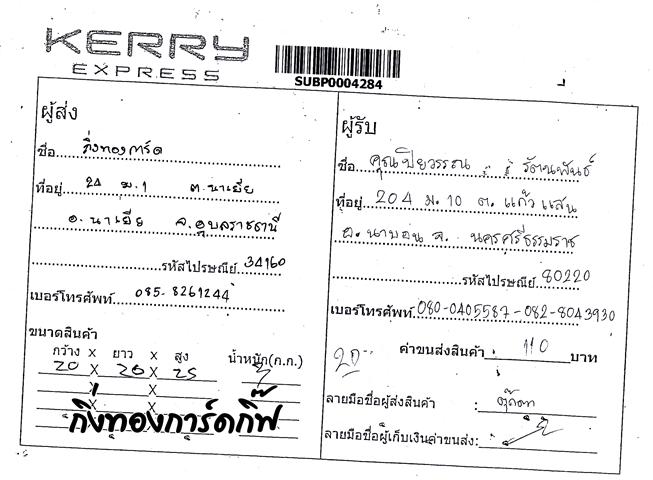 KERRY
EXPRESS
SUBP0004284
ผู้ส่ง
ชื่อ กิ่งทองการ์ด
ที่อยู่ 24 ม.1 ต.นาเยีย
อ.นาเยีย จ.อุบลราชธานี
รหัสไปรษณีย์ 34160
เบอร์โทรศัพท์ 085-8261244
ขนาดสินค้า
กว้าง x ยาว x สูง น้ำหนัก(ก.ก.)
20 x 26 x 25 3
x x
x
กิ่งทองการ์ดกิ๊ฟ
ผู้รับ
ชื่อ คุณปิยวรรณ รัตนพันธ์
ที่อยู่ 204 ม.10 ต.แก้วแสน
อ.นาบอน จ.นครศรีธรรมราช
รหัสไปรษณีย์ 80220
เบอร์โทรศัพท์ 080-0405587-082-8043930
20 ค่าขนส่งสินค้า 110 บาท
ลายมือชื่อผู้ส่งสินค้า : ตุ๊กตา
ลายมือชื่อผู้เก็บเงินค่าขนส่ง: